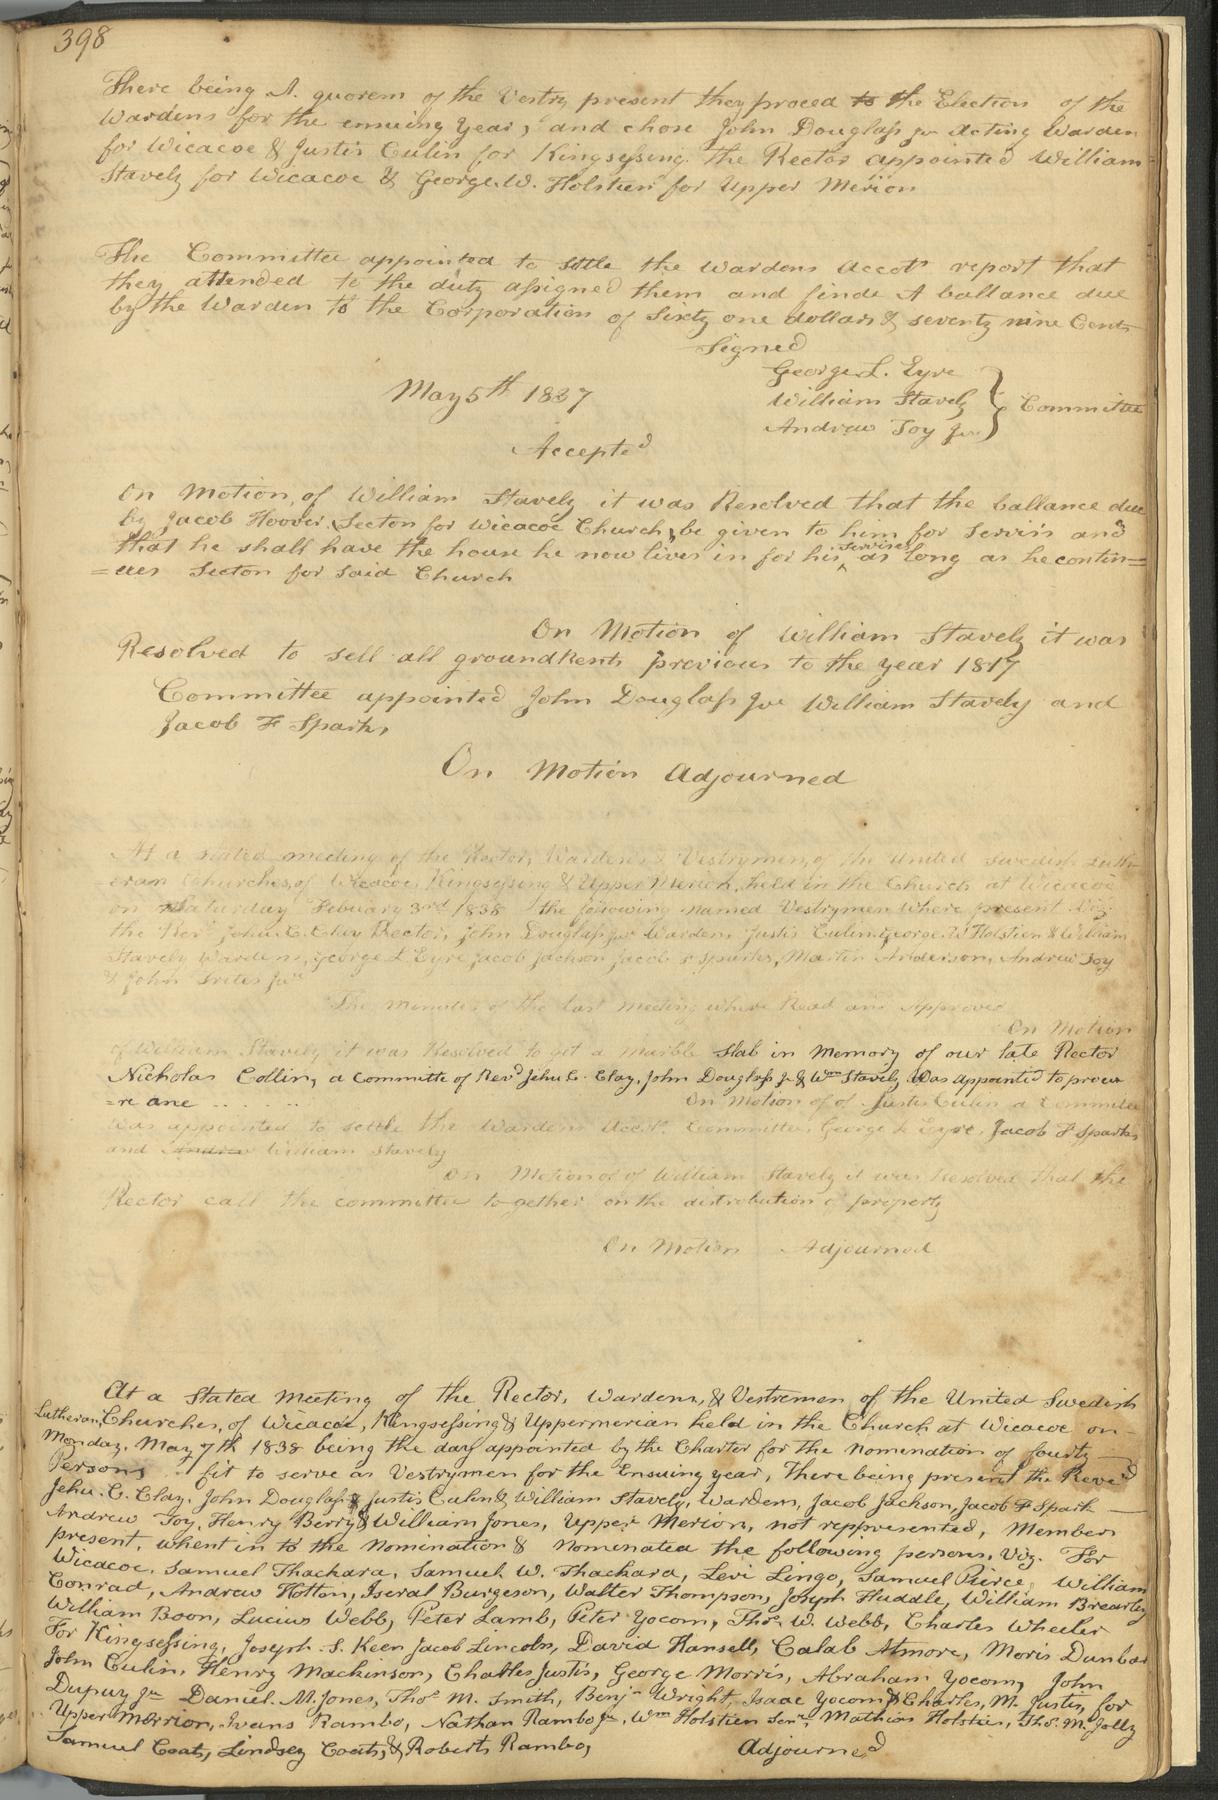 398
There being A. quorem of the Vestry present they proced to the Election of the
Wardens for the ensuing Year, and chose John Douglass jur Acting Warden
for Wicacoe & Justis Culin for Kingsessing. The Rector appointed William
Stavely for Wicacoe & George. W. Holstien for Upper Merion
The Committee appointed to settle the Wardens Accots report that
they attended to the duty assigned them and finde A ballance due
by the Warden to the Corporation of Sixty one dollars & seventy nine Cents
Signed
George. L. Eyre
William Stavely } Committee
Andrew Toy Jur
May 5th 1837
Accepted
On Motion, of William Stavely it was Resolved that the ballance due
by Jacob Hoover. Secton for Wicacoe Church, be given to him for Servis and
that he shall have the house he now lives in for his ^servises as long as he contin=
=ues Secton for said Church
On Motion of William Stavely it was
Resolved to sell all ground Rents previous to the year 1817
Committee appointed John Douglass Jur William Stavely and
Jacob F Sparks
On Motion Adjourned
At a stated meeting of the Rector, Wardens & Vestrymen, of the United Swedish Luth-
-eran Churches, of Wicacoe, Kingsessing & Upper Merion, held in the Church at Wicacoe
on Saturday Febuary 3rd 1838 the following named Vestrymen where present Viz
the Revd John. C. Clay Rector, John Douglass jur Warden, Justis Culin, George. W Holstien & William
Stavely Wardens, George L Eyre Jacob Jackson Jacob F Sparks, Martin Anderson, Andrew Toy
& John Irites Jur
The Minutes of the last Meeting where Read and Approved
On Motion
of William Stavely it was Resolved to get a Marble Slab in Memory of our late Rector
Nicholas Collin, a Committe of Revd Jehu C. Clay, John Douglass Jr & Wm Stavely Was appointed to procu
=re ane On Motion of of Justis Culin a Committee
was appointed to settle the Wardens Accot. Committee, George L Eyre, Jacob F Sparks
and Andrew William Stavely
On Motion of of William Stavely it was Resolved that the
Rector call the committee together on the distrobution of property
On Motion Adjourned
At a Stated Meeting of the Rector, Wardens, & Vestremen of the United Swedish
Lutheran, Churches, of Wicacoe, Kingsessing & Uppermerian held in the Church at Wicacoe on-
Monday, May 7th 1838 being the day appointed by the Charter for the nomination of fourty
Persons fit to serve as Vestrymen for the Ensuing year, There being present the Reved
Jehu. C. Clay. John Douglass & Justis Culin & William Stavely, Wardens, Jacob Jackson, Jacob F Spark
Andrew Toy, Henry Berry & William Jones, Upper Merion, not reppresented, Members
present, whent in to the Nomination & Nominated the following persons, Viz. For
Wicacoe. Samuel Thackara, Samuel W. Thackara, Levi Lingo, Samuel Pierce, William
Conrad, Andrew Hotton, Iseral Burgeson, Walter Thompson, Joseph Huddle, William Brearley
William Boon, Lucius Webb, Peter Lamb, Peter Yocom, Thos. W. Webb, Charles Wheeler
For Kingsessing, Joseph. S. Keen Jacob Lincoln, David Hansell, Calab Atmore, Moris Dunbar
John Culin, Henry Mackinson, Charles Justis, George Morris, Abraham Yocom, John
Dupuy Jur Daniel. M. Jones, Thos M. Smith, Benjn Wright, Isaac Yocom & Charles, M. Justis, for
Upper Merrion, Ivans Rambo, Nathan Rambo Jr, Wm Holstien Senr, Mathias Holstien, Thos. M. Jolly
Samuel Coats, Lindsey Coats, & Roberts Rambo, Adjourned